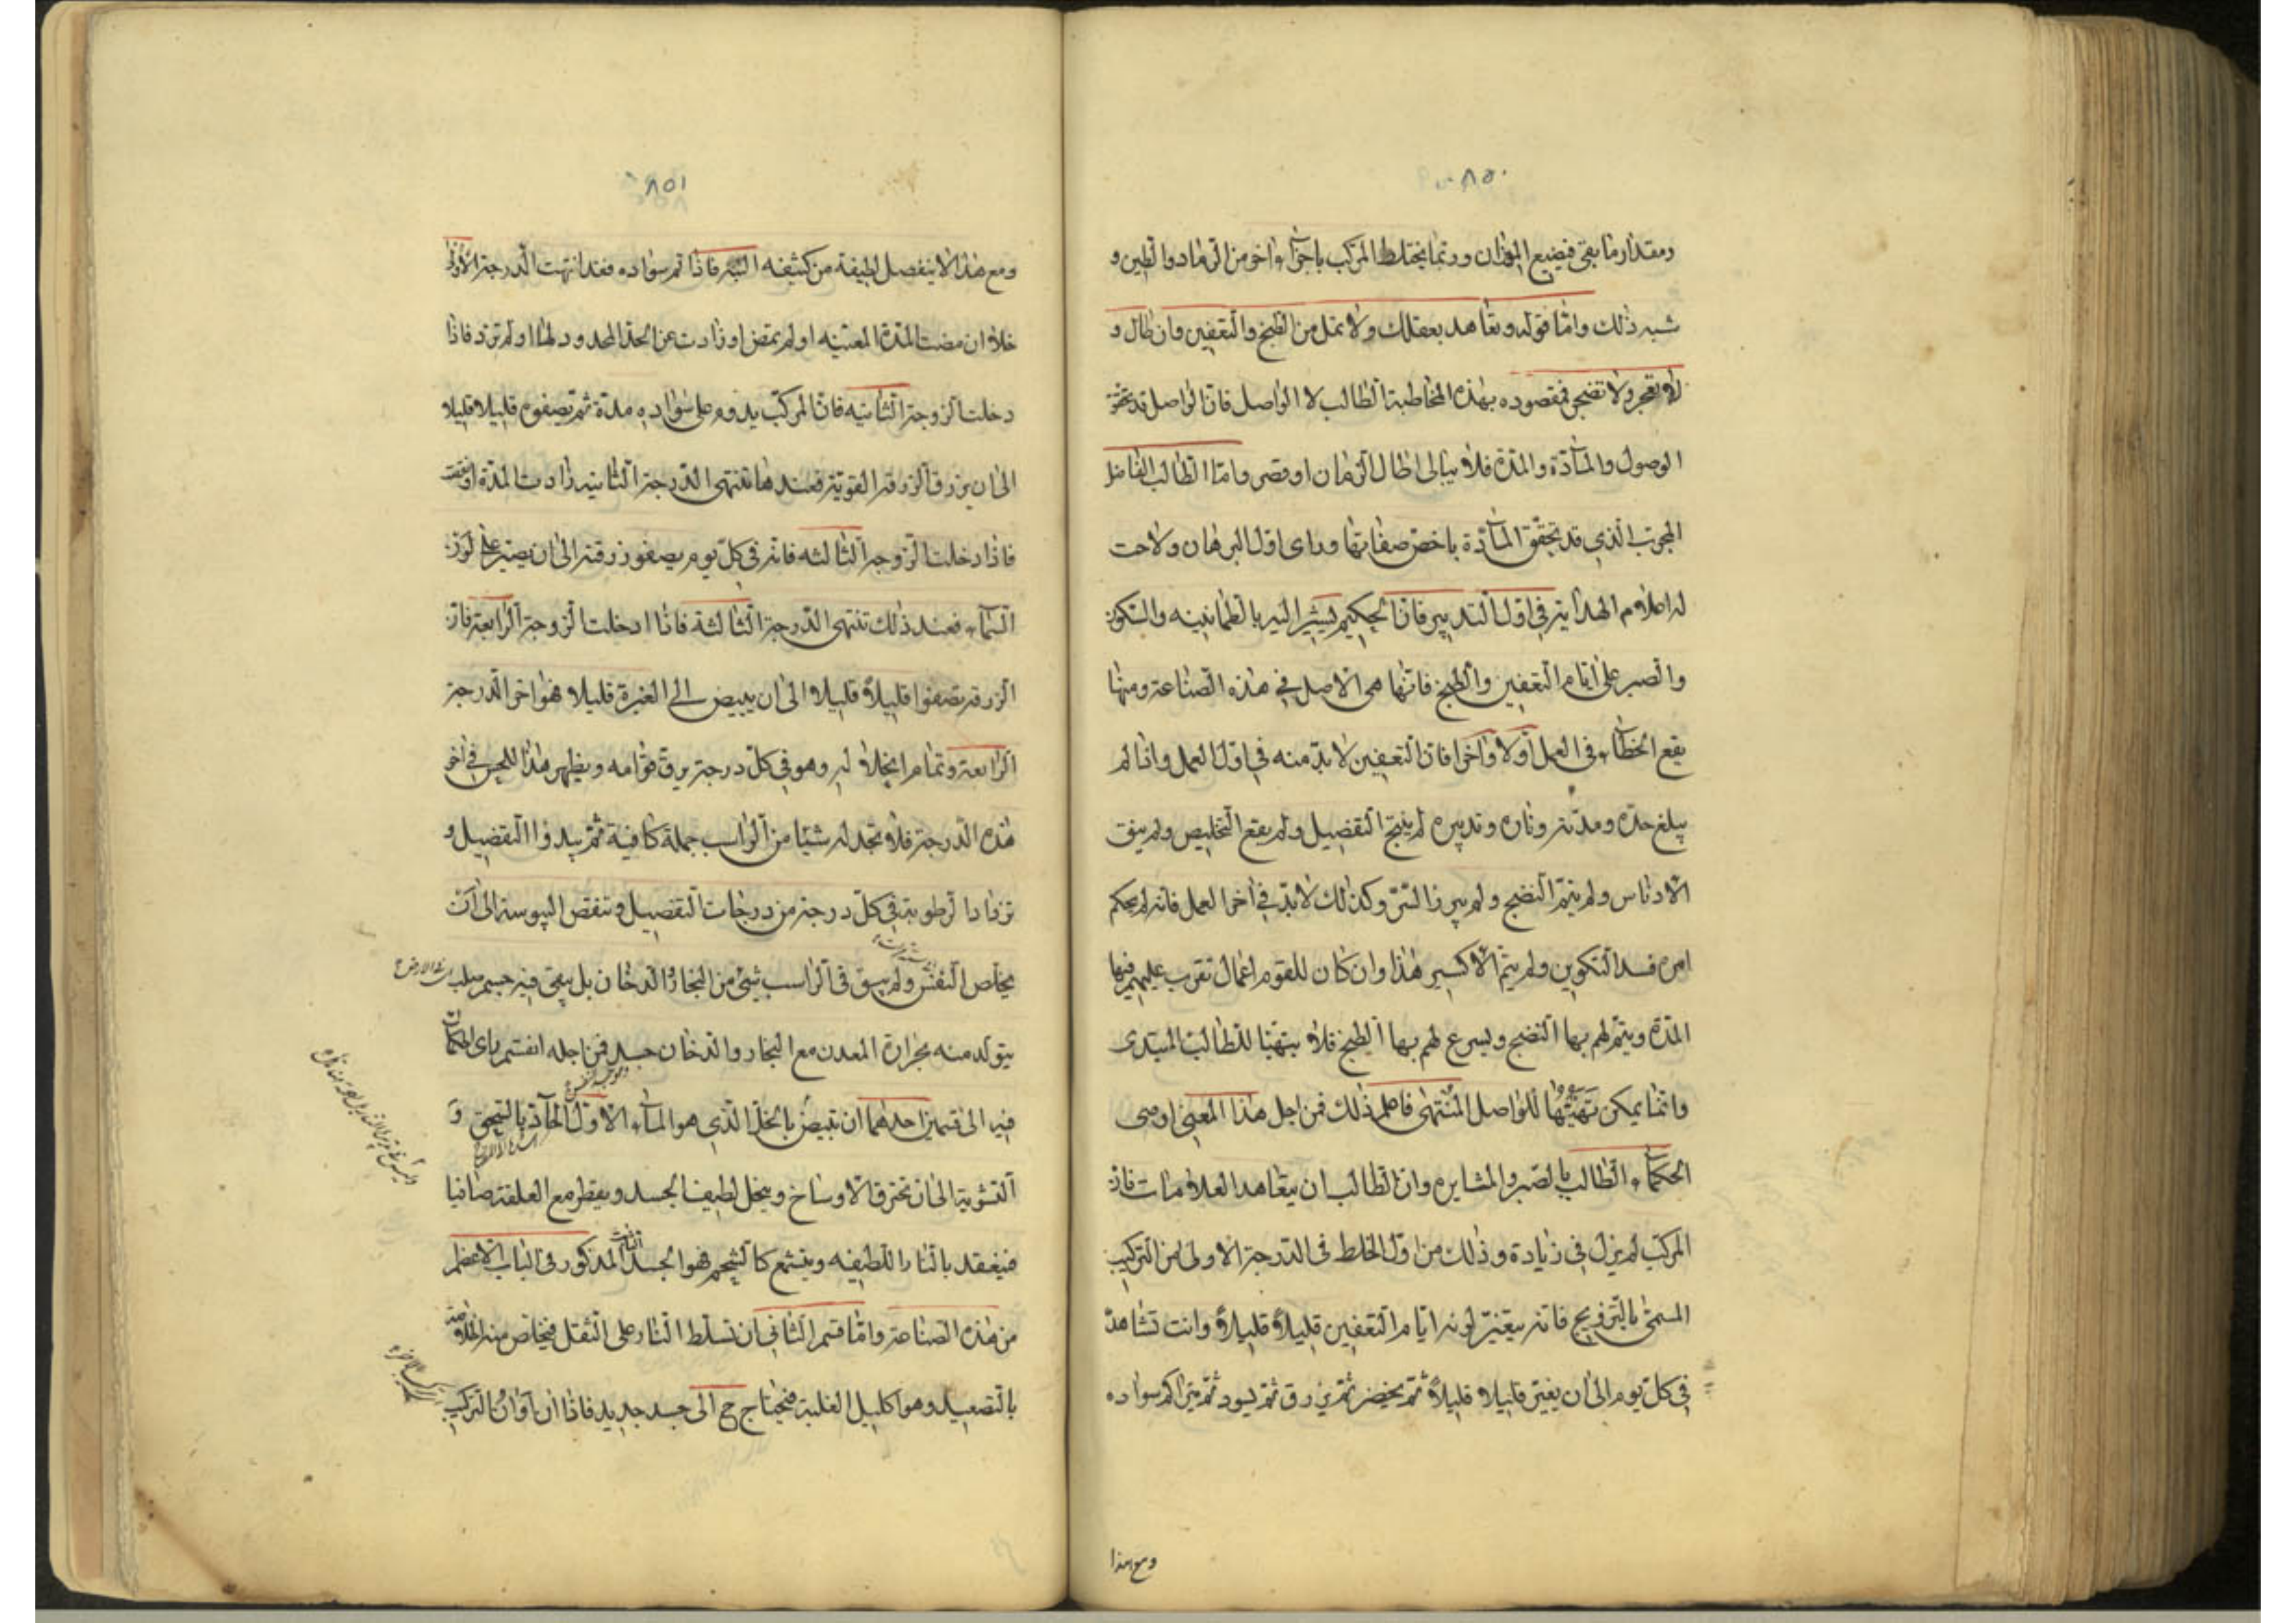 ٨٥٠
ومقدار ما بقى فيضيع الميزان وربما يختلط المركب باجزاء اخر من الرماد والطين و
شبه ذلك واما قوله وتعاهد بعقلك ولا تمل من الطبخ والتعفين وان طال و
لا تعجز ولا تضجر فمقصوده بهذه المخاطبة الطالب لا الواصل فان الواصل قد تحقق
الوصول والمادة والمدة فلا يبالى اطال الزمان او قصر واما الطالب الفاضل
المجرب الذي قد تحقق المادة باخص صفاتها وراى اول البرهان ولاحت
له اعلام الهداية في اول التدبير فان الحكيم يشير اليه بالطمانينه والسكون
والصبر على ايام التعفين والطبخ فانها هى الاصل في هذه الصناعة ومنها
يقع الخطاء في العمل اولا واخرا فان التعفين لا بد منه في اول العمل واذا لم
يبلغ حده ومدته وناره وتدبيره لم ينجح التفصيل ولم يقع التخليص ولم ينق
الادناس ولم يتم النضج ولم يبرز السر وكذلك لا بد في اخر العمل فانه لم يحكم
امره فسد التكوين ولم يتم الاكسير هذا وان كان للقوم اعمال تقرب عليهم فيها
المدة ويتم لهم بها النضج ويسرع لهم بها الطبخ فلا يتهيا للطالب المبتدى
وانما يمكن تهيئها للواصل المنتهى فاعلم ذلك فمن اجل هذا المعنى اوصى
الحكماء الطالب بالصبر والمثابره وان الطالب ان يتعاهد العلامات فان
المركب لم يزل في زيادة وذلك من اول الخلط فى الدرجة الاولى من التركيب
المسمى بالتزويج فانه يتغير لونه ايام التعفين قليلا قليلا وانت تشاهد
في كل يوم الى ان يغبر قليلا قليلا ثم يخضر ثم يزرق ثم يسود ثم يتراكم سواده
ومع هذا
٨٥١
ومع هذا لا ينفصل لطيفة من كثيفه البته فاذا تم سواده فقد انتهت الدرجة الاولى
خلا ان مضت المدة المعينه او لم تمض او زادت عن الحد المحدود لها او لم تزد فاذا
دخلت الزوجة الثانيه فان المركب يدوم على سواده مدة ثم يصفو قليلا قليلا
الى ان يزرق الزرقة القوية فعندها تنتهى الدرجة الثانيه زادت المدة او نقصت
فاذا دخلت الزوجة الثالثه فانه في كل يوم يصفو زرقته الى ان يصير على لون
السماء فعند ذلك تنتهى الدرجة الثالثة فاذا ادخلت الزوجة الرابعة فان
الزرقه تصفوا قليلا قليلا الى ان يبيض الى الغبرة قليلا فهو اخر الدرجة
الرابعة وتمام انحلاله وهو في كل درجة يرق قوامه ويظهر هذا للحس في اخر
هذه الدرجة فلا تجد له شيئا من الراسب جملة كافية ثم يبدوا التفصيل و
تزداد الرطوبة في كل درجة من درجات التفصيل وتنقص اليبوسة الى ان
يخلص النفس ولم يبق فى الراسب شئ من البخار والدخان بل يبقى فيه جسم صلب
يتولد منه بحرارة المعدن مع البخار والدخان جسد فمن اجله انقسم راى الحكماء
فيه الى قسمين احدهما ان تبيض بالخل الذي هو الماء الاول الحاذق بالسحق و
التشوية الى ان تحترق الاوساخ وينحل لطيف الجسد ويقطر مع العلقة صافيا
فينعقد بالنار اللطيفه ويتشمع كالشحم فهو الجسد الثابت المذكور فى الباب الاعظم
من هذه الصناعة واما قسم الثاني ان تسلط النار على الثقل فيخلص منه الخلاصه
بالتصعيد وهو اكليل الغلبة فيحتاج ح الى جسد جديد فاذا ان اوان التركيب